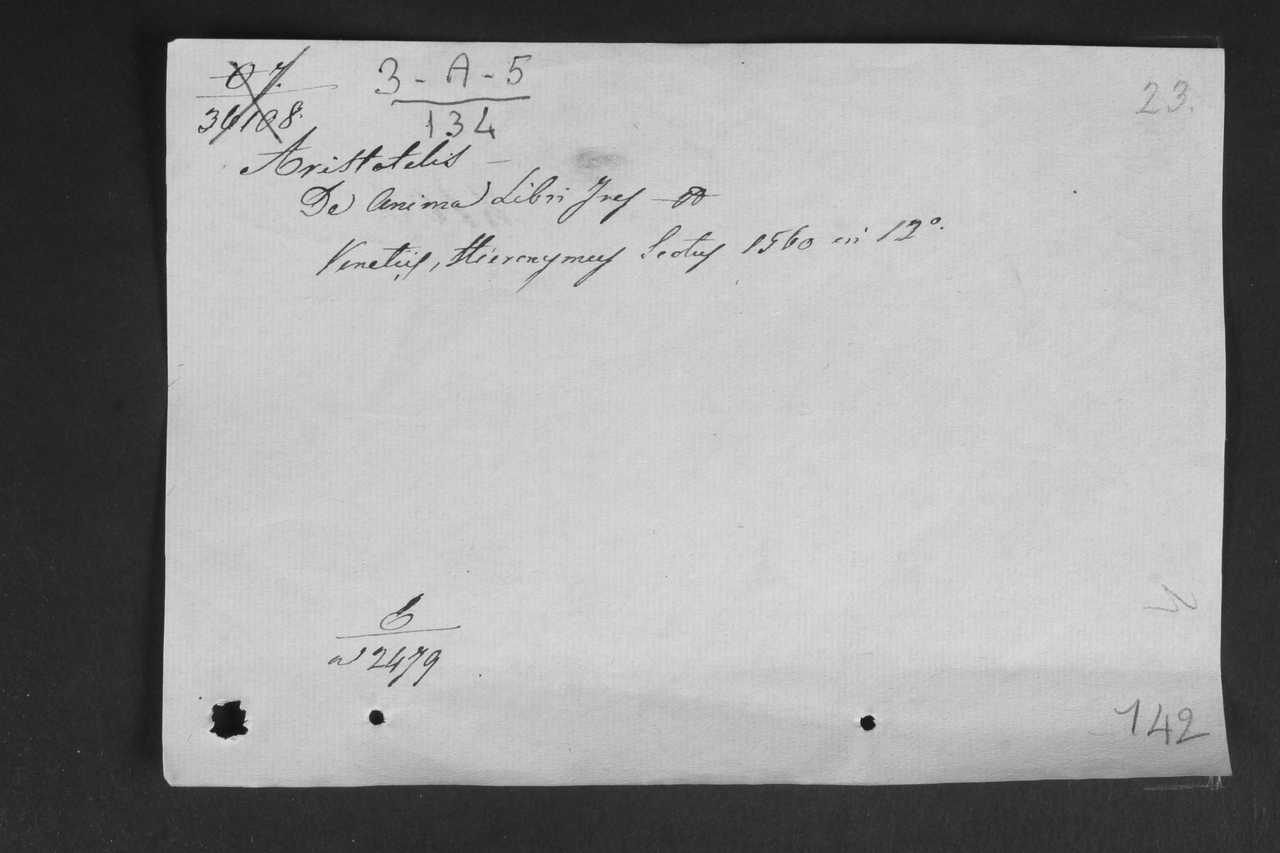 3-A-5
134
23.
36108.
Aristotelis
De Anima Libri Tres
Venetiis, Hieronymus Scotus 1560 en 12º.
a 2479
142